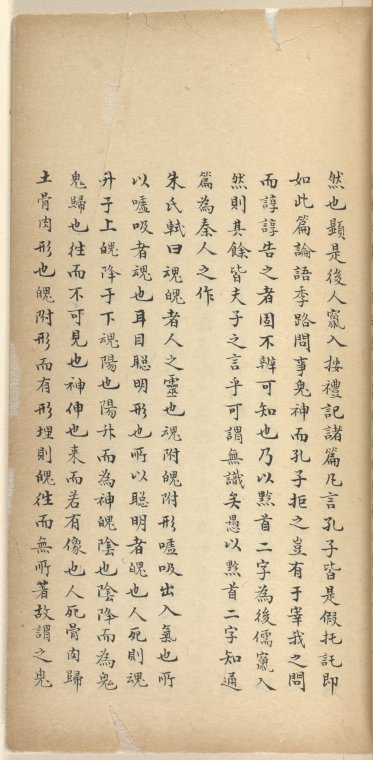 然也顯是後人竄入按禮記諸篇凡言孔子皆是假托託即
如此篇論語季路問事鬼神而孔子拒之豈有于宰我之問
而諄諄告之者固不辨可知也乃以黔首二字為後儒竄入
然則其餘皆夫子之言乎可謂無識矣愚以黔首二字知通
篇為秦人之作
朱氏軾曰魂魄者人之靈也魂附魄附形噓吸出入氣也所
以噓吸者魂也耳目聰明形也所以聰明者魄也人死則魂
升于上魄降于下魂陽也陽升而為神魄陰也陰降而為鬼
鬼歸也徃而不可見也神伸也来而若有像也人死骨肉歸
土骨肉形也魄附形而有形埋則魄徃而無所著故謂之鬼